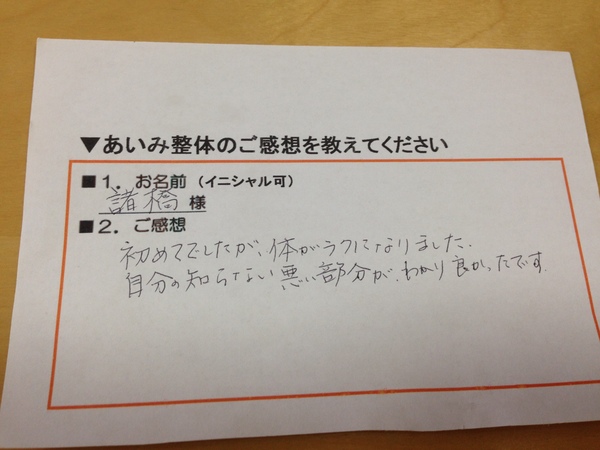 ▼あいみ整体のご感想を教えてください
■1．お名前（イニシャル可）
諸橋様
■2．ご感想
初めてでしたが、体がラクになりました。
自分の知らない悪い部分が、わかり良かったです。